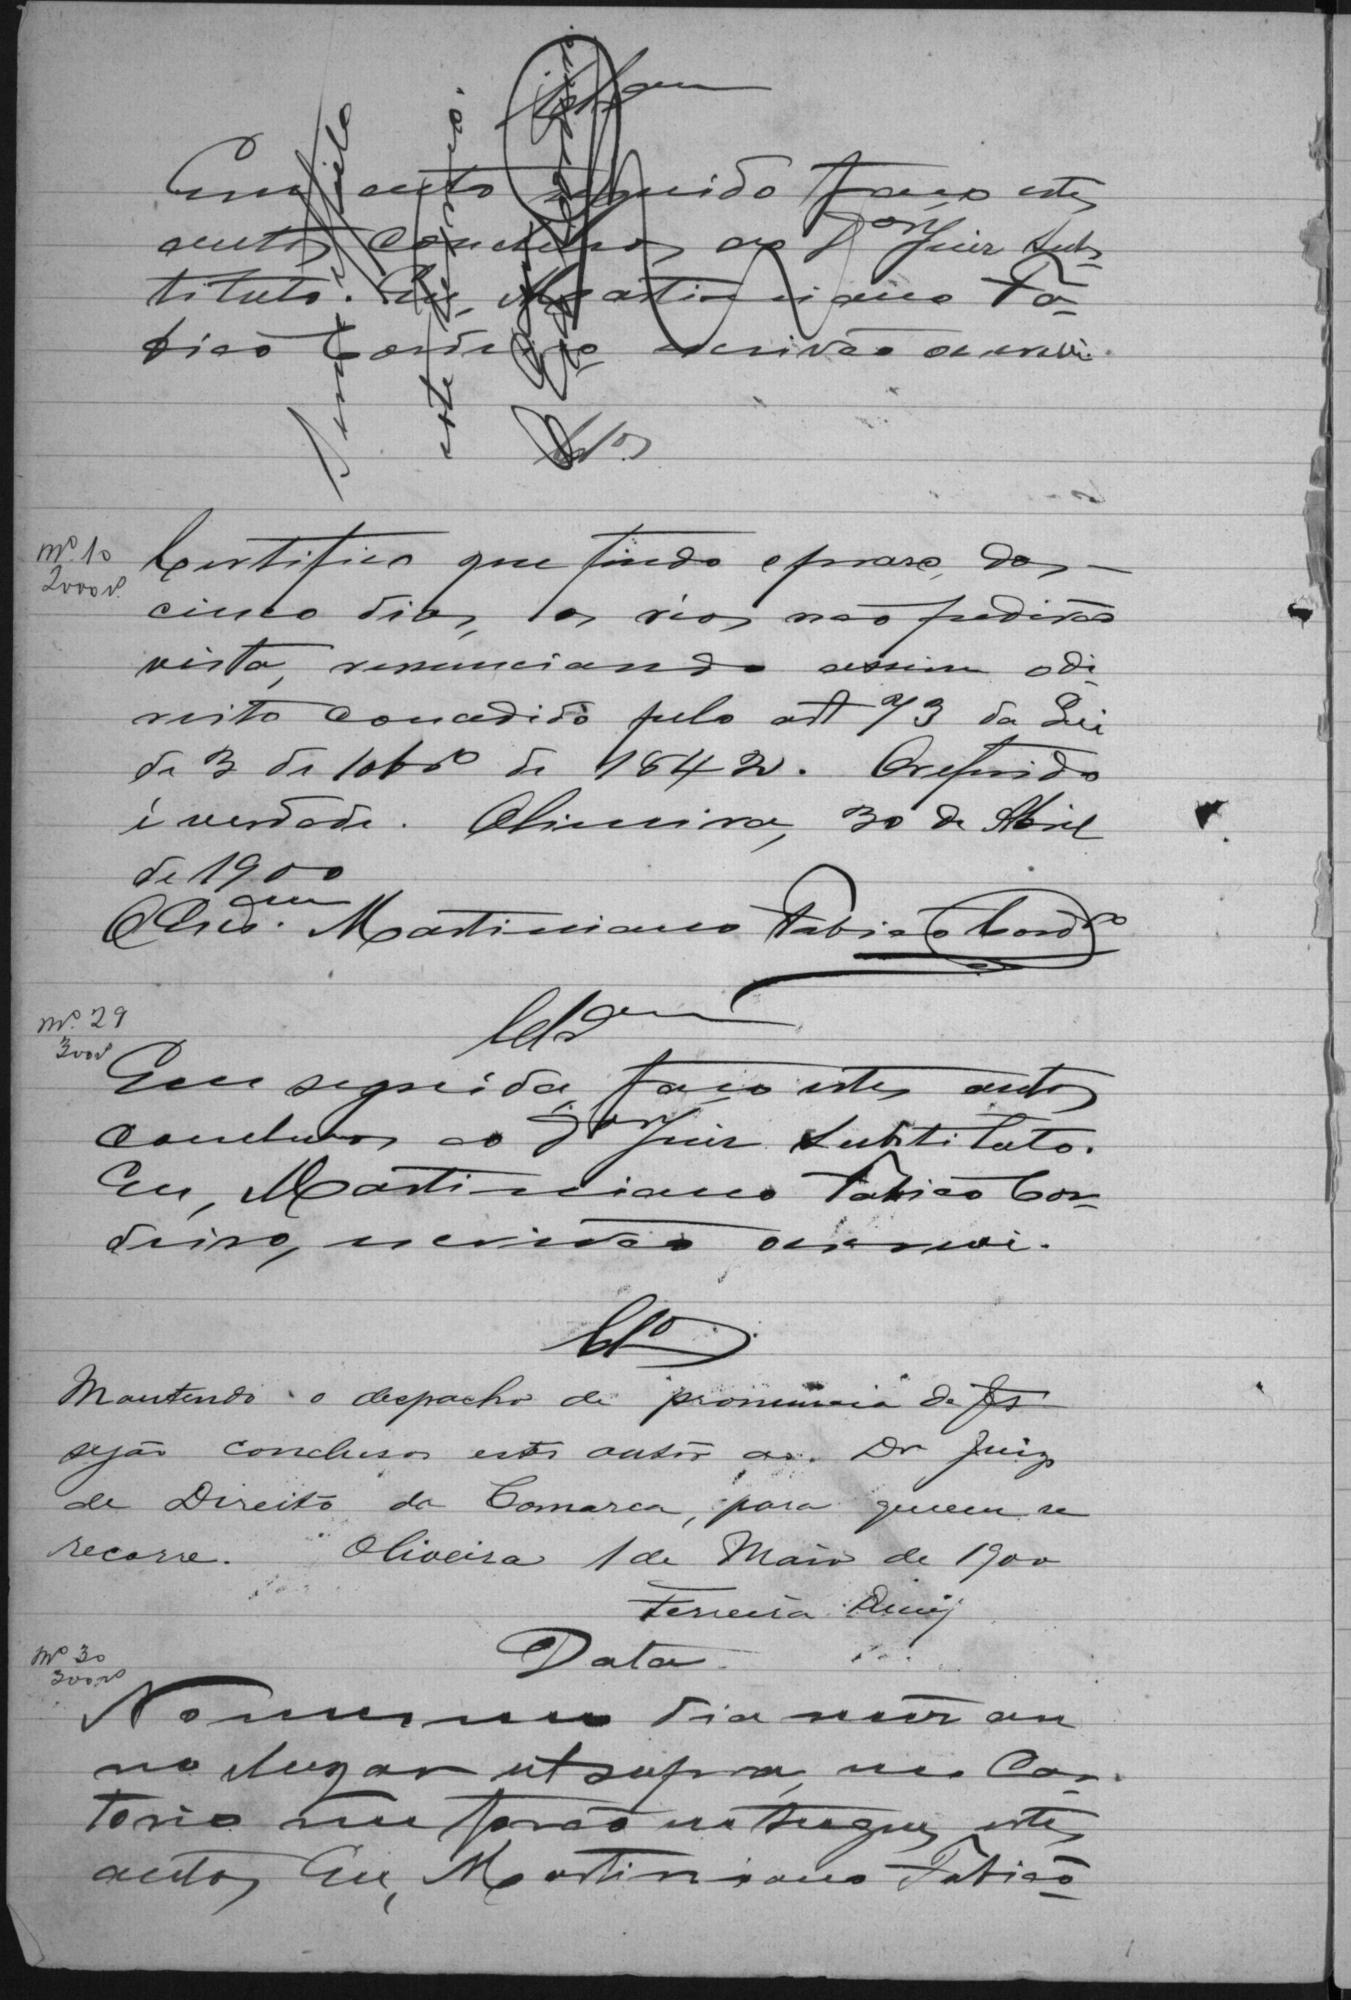 Clsam
Em acto seguido faço estes
autos conclusos ao 1º Juiz Subs-
tituto. Eu, Martiniano Fa-
bião Cordeiro escrivão o escrevi.
Inutilisado
este termo.
Clos
Nº. 10
2000rs.
Certifico que findo o praso, dos
cinco dias, os réos não pedirão
vista, renunciando assim o di-
reito concedido pelo art 73 da Lei
de 3 de 10brº de 1842. O referido
é verdade. Oliveira, 30 de Abril
de 1900
O Escram. Martiniano Fabião Cordrº
Nº. 29
300rs
Clsam
Em seguida, faço estes autos
conclusos ao Juiz Substituto.
Eu, Martiniano Fabião Cor-
deiro, escrivão o escrevi.
Clos
Mantendo o despacho de pronuncia de fs
sejão conclusos estes autos ao Dr Juiz
de Direito da Comarca, para quem se
recorre. Oliveira 1 de Maio de 1900
Ferreira Diniz
Nº 30
300rs
Data
No mesmo dia mez an
no lugar ut supra, em Car-
torio me forão entregues estes
autos, Eu, Martiniano Fabião